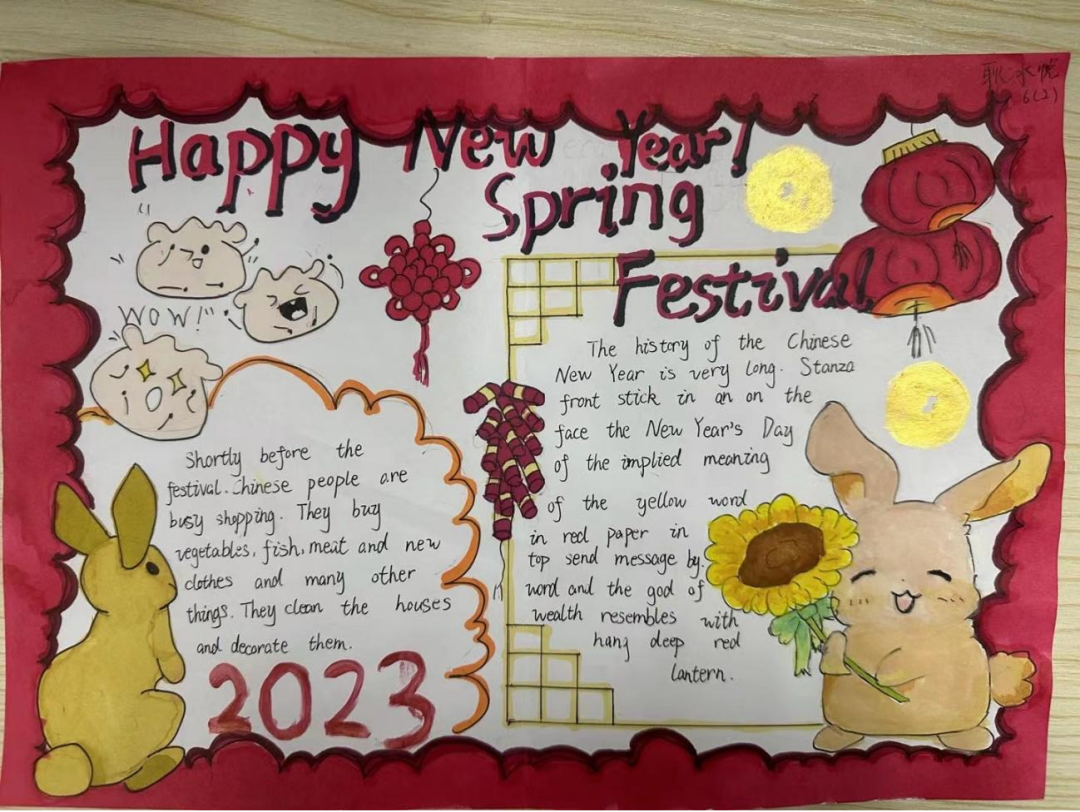 6(2)
Happy New Year!
Spring
Festival
WOW!
The history of the Chinese
New Year is very long. Stanza
front stick in an on the
face the New Year's Day
of the implied meaning
of the yellow word
in red paper in
top send message by.
word and the god of
wealth resembles with
hang deep red
lantern.
Shortly before the
festival. Chinese people are
busy shopping. They buy
vegetables, fish, meat and new
clothes and many other
things. They clean the houses
and decorate them.
2023